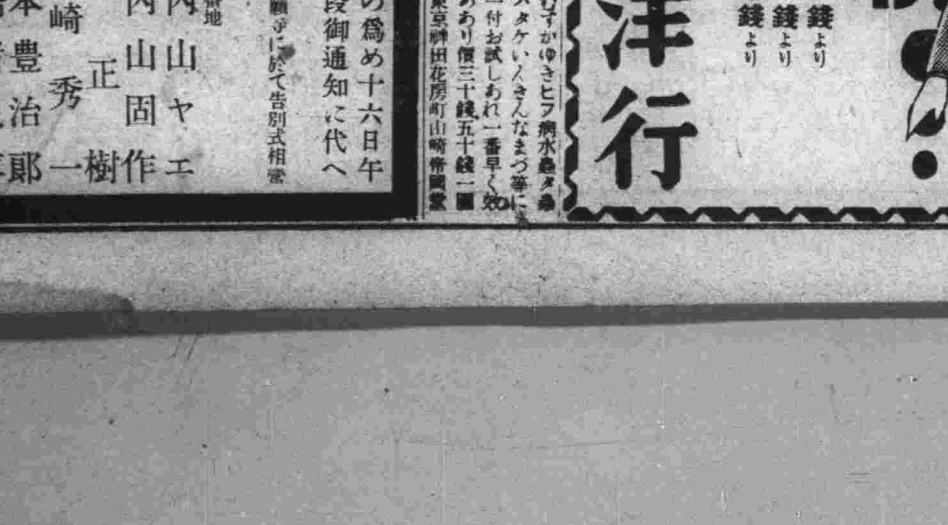 錢より
錢より
錢より
洋行
むずがゆきヒフ病水蟲タ蟲
スタケいんきんなまづ等に
一付お試しあれ一番早く效
あり價三十錢五十錢一圓
東京神田花房町山崎帝國堂
の爲め十六日午
段御通知に代へ
願寺に於て告別式相營
番地
内山ヤエ
内山固作
正樹
崎秀一
本豊治郎